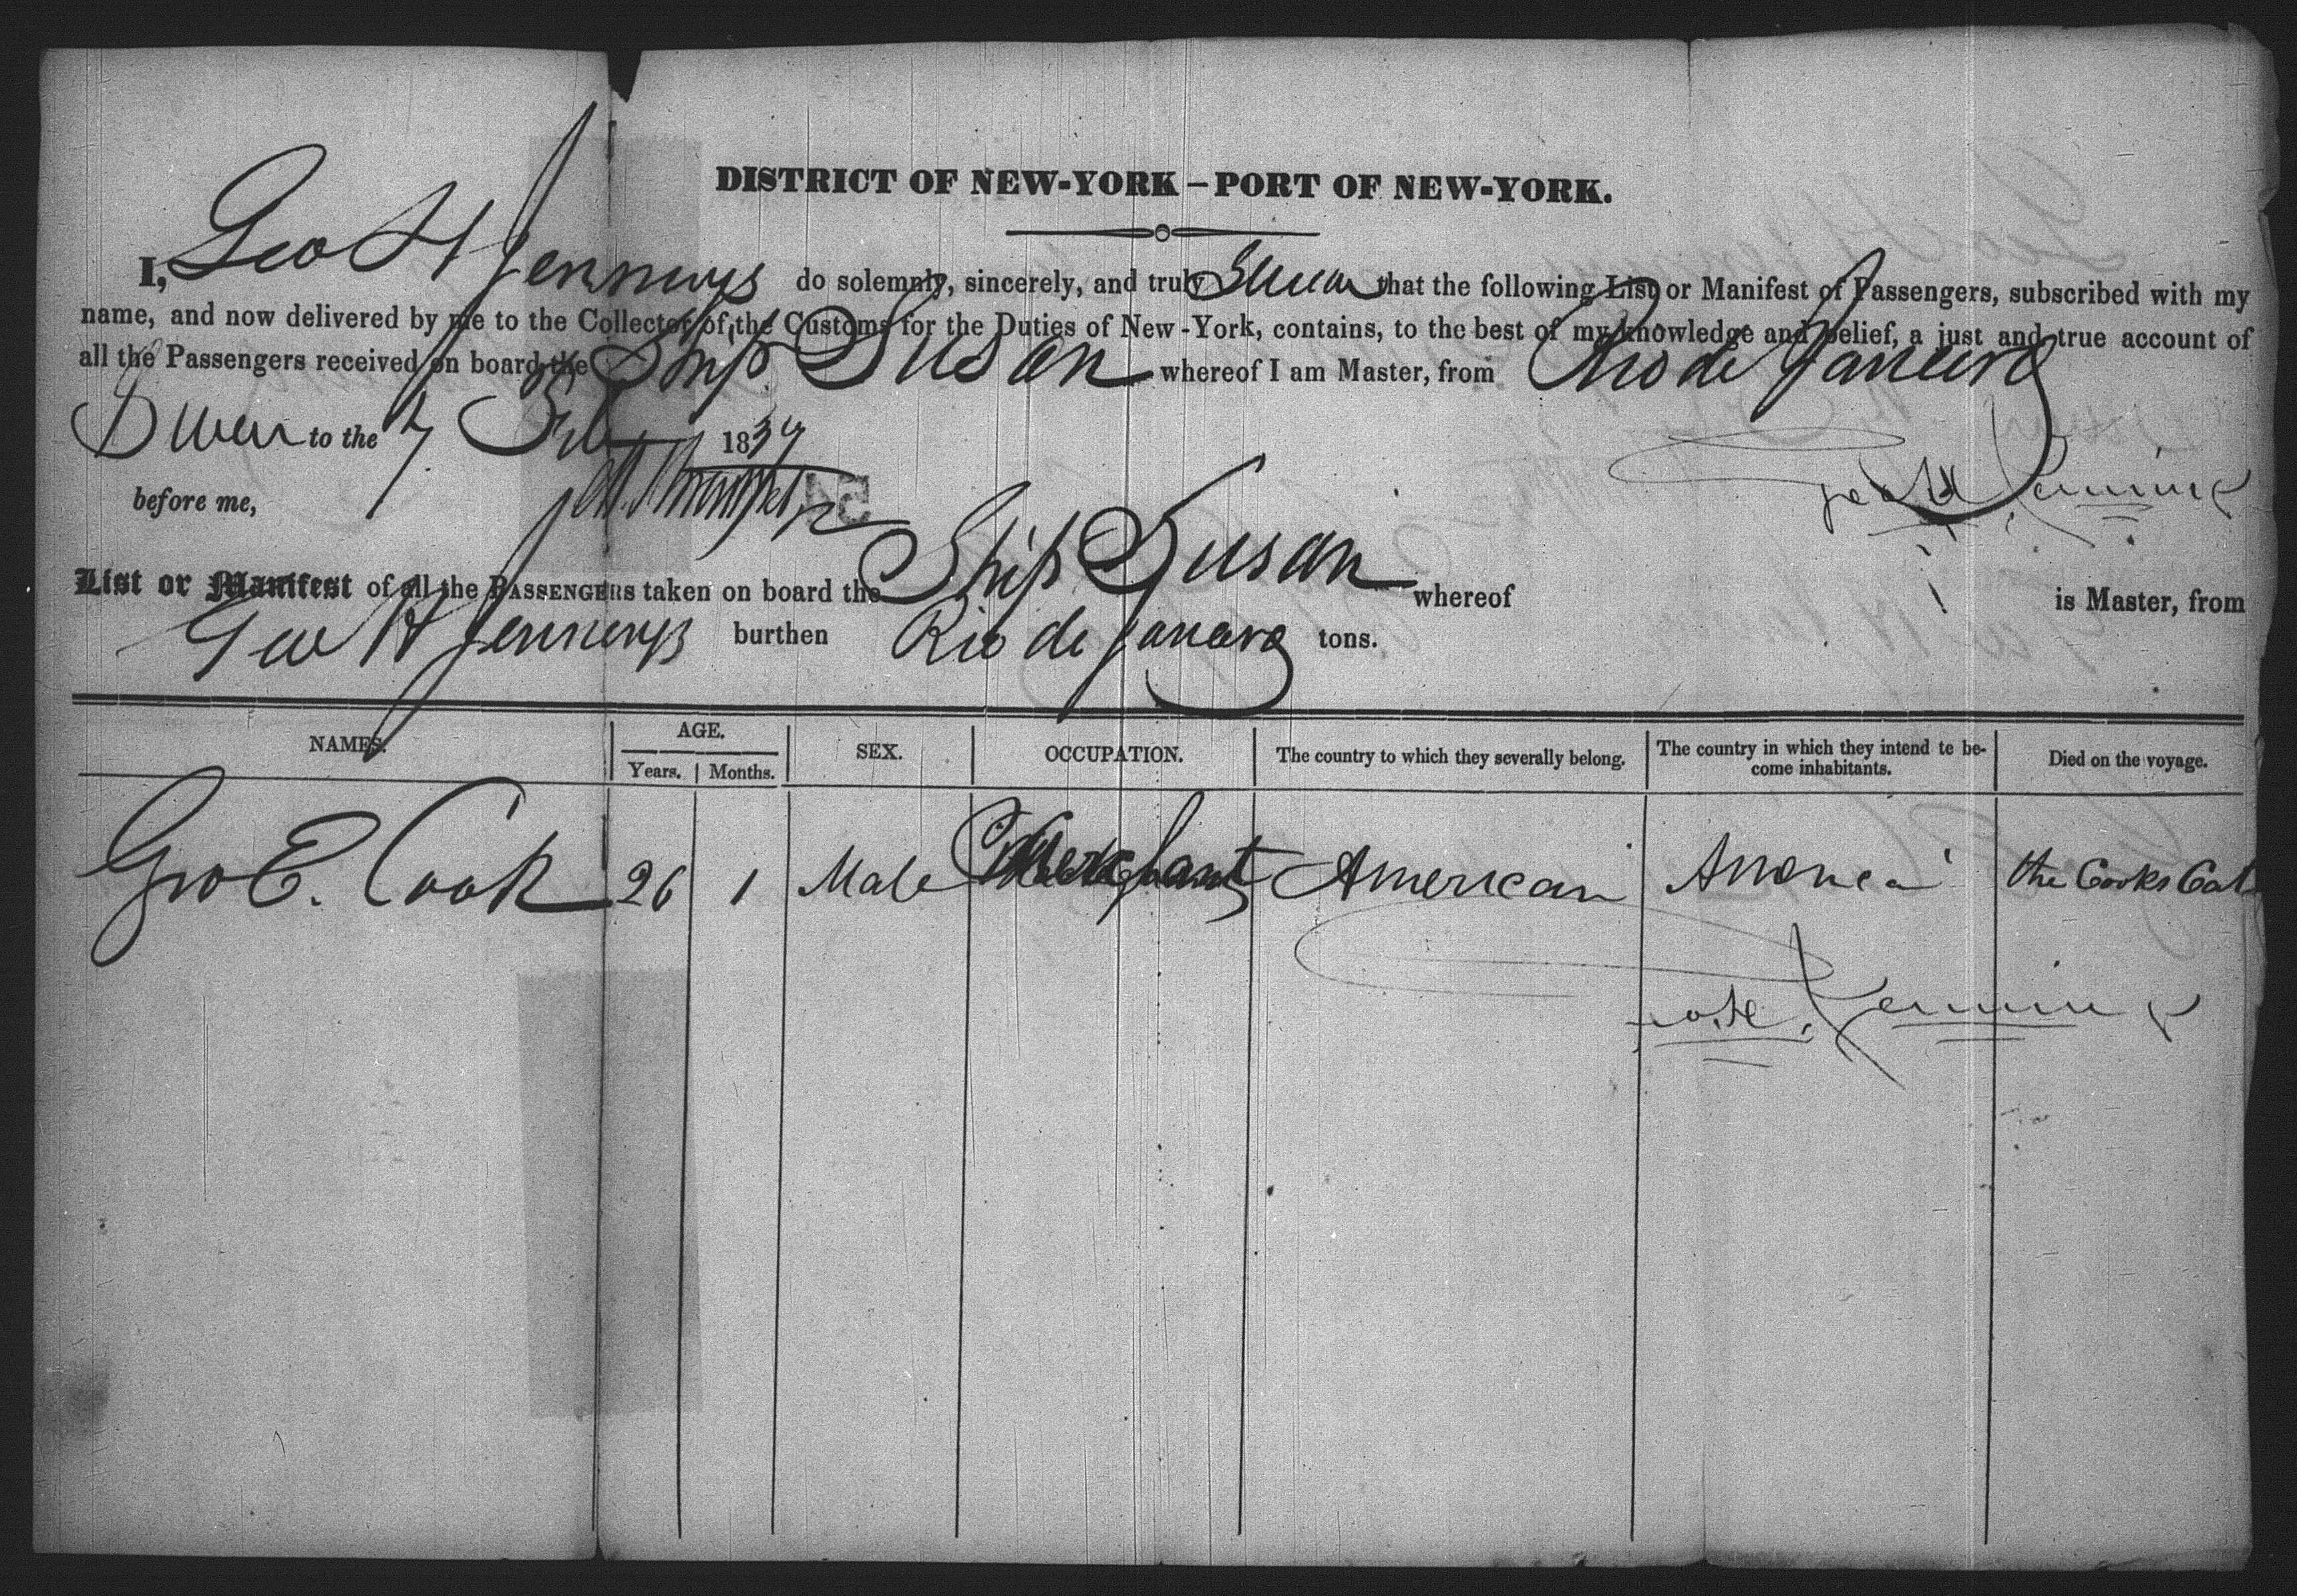 DISTRICT OF NEW-YORK - PORT OF NEW-YORK.
I, Geo H Jennings do solemnly, sincerely, and truly Swear that the following List or Manifest of Passengers, subscribed with my
name, and now delivered by me to the Collector of the Customs for the Duties of New-York, contains, to the best of my knowledge and belief, a just and true account of
all the Passengers received on board the Ship Susan whereof I am Master, from Rio de Janeiro
Sworn to the 7 Feb 1839
before me,
54
Geo H Jennings
List or Manifest of all the PASSENGERS taken on board the Ship Susan whereof is Master, from
Geo H Jennings burthen Rio de Janeiro tons.
NAMES. AGE. SEX. OCCUPATION. The country to which they severally belong. The country in which they intend te be-come inhabitants. Died on the voyage.
Years. Months.
Geo E. Cook 26 1 Male Merchant American America the Cooks Cat
Geo. H. Jennings